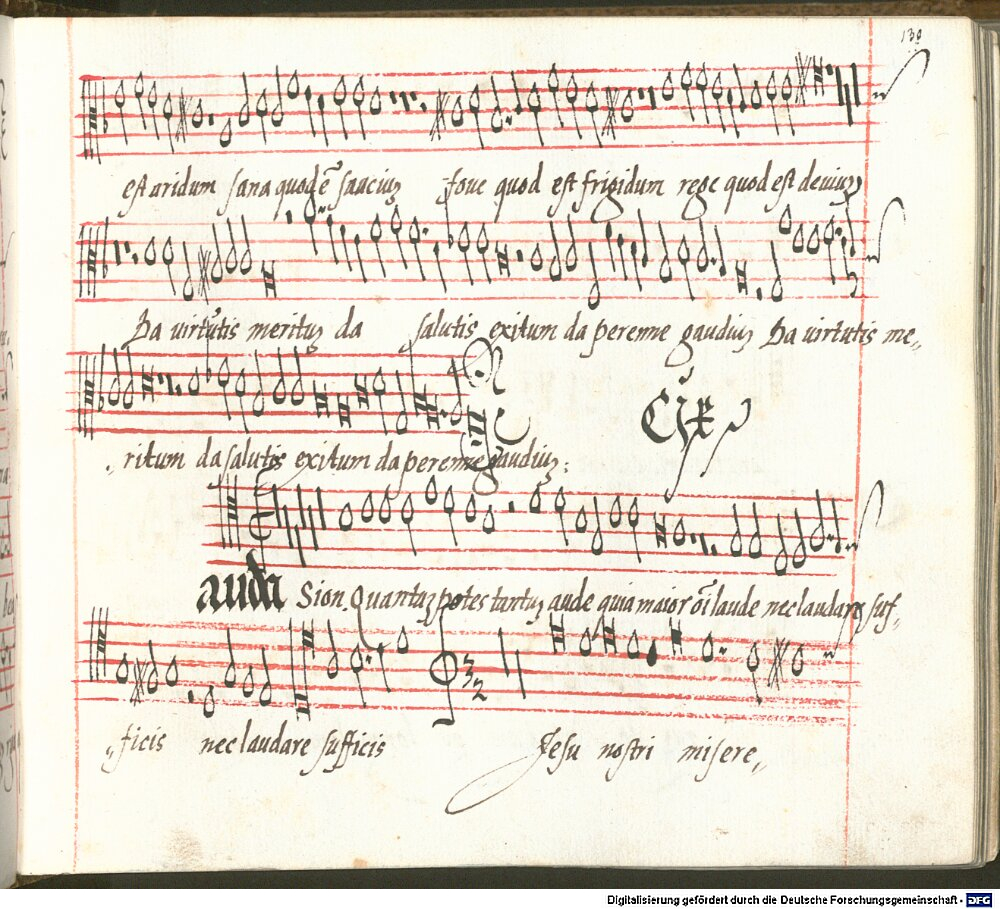 130
est aridum sana quod ē sauciuȝ foue quod est frigidum rege quod est deuiuȝ
Da uirtutis merituȝ da salutis exitum da perenne gaudiuȝ Da uirtutis me„
„ritum da salutis exitum da perenne gaudiuȝ:
auda Sion Quantuȝ potes tantuȝ aude quia maior ōi laude nec laudare suf„
3
2
„ficis nec laudare sufficis Jesu nostri misere„
Digitalisierung gefördert durch die Deutsche Forschungsgemeinschaft - DFG